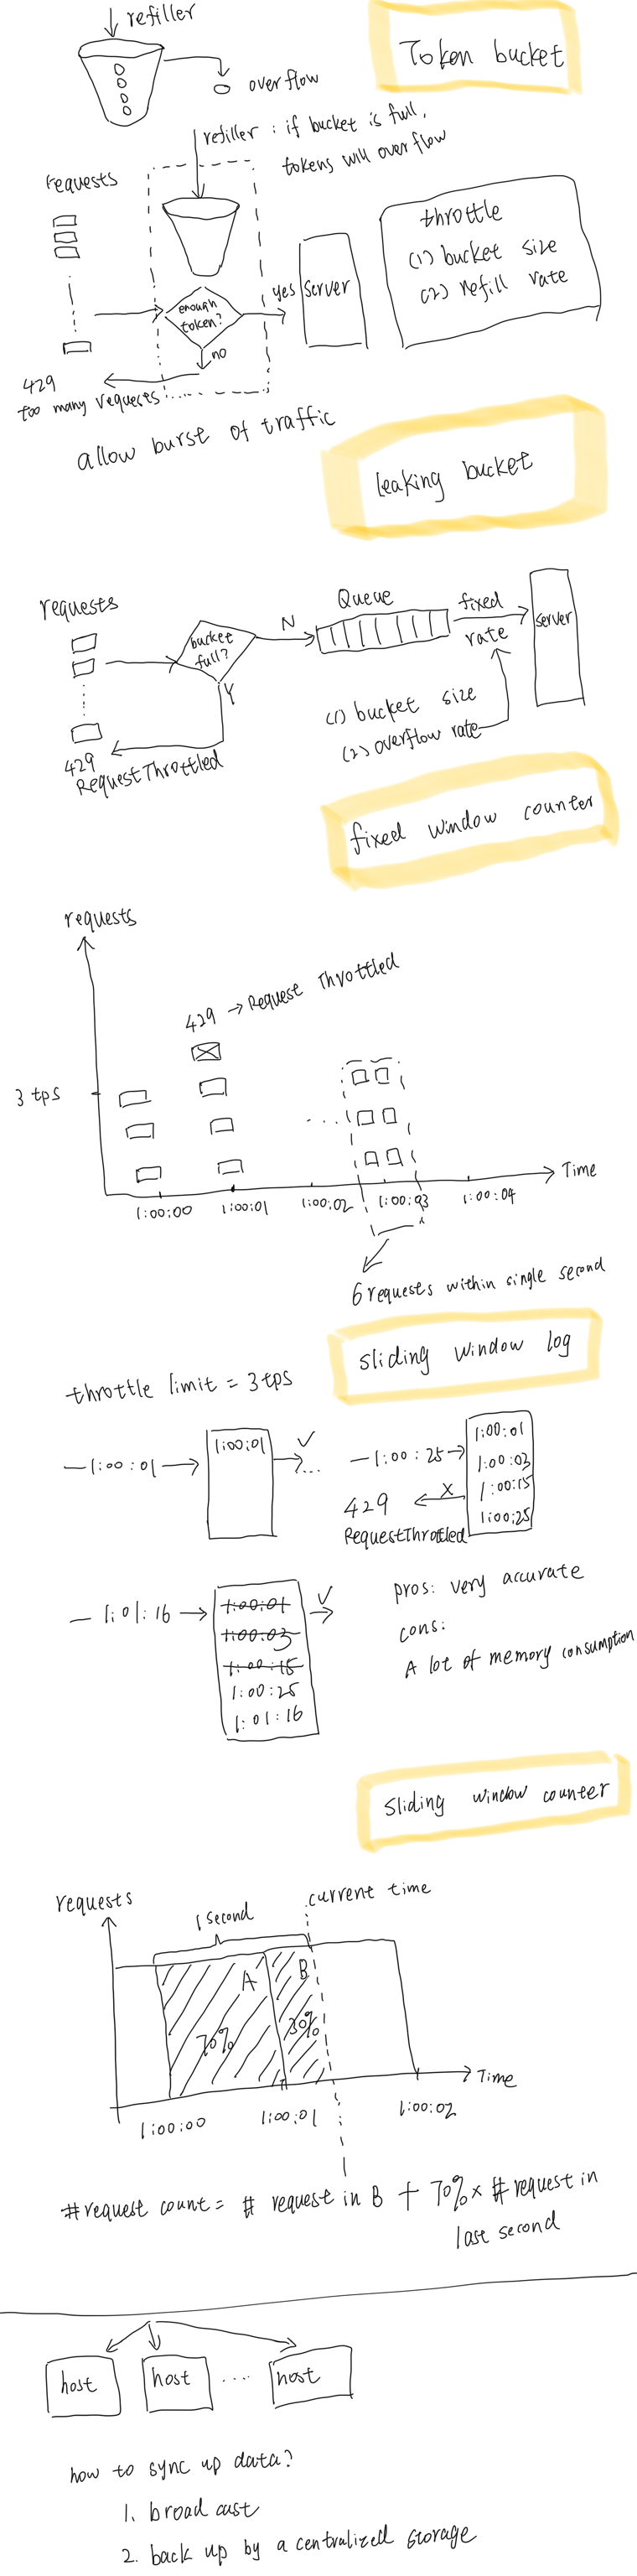 refiller
Token bucket
overflow
refiller : if bucket is full,
tokens will overflow
requests
throttle
(1) bucket size
(2) refill rate
enough
token?
yes
server
no
429
too many requests
allow burst of traffic
leaking bucket
requests
bucket
full?
N
Queue
fixed
rate
server
Y
(1) bucket size
(2) overflow rate
429
RequestThrottled
fixed window counter
requests
429 → Request Throttled
3 tps
...
Time
1:00:00
1:00:01
1:00:02
1:00:03
1:00:04
6 requests within single second
sliding window log
throttle limit = 3 tps
1:00:01
1:00:01
✓
...
1:00:25
1:00:01
1:00:03
1:00:15
1:00:25
X
429
RequestThrottled
1:01:16
1:00:01
1:00:03
1:00:15
1:00:25
1:01:16
✓
pros: very accurate
cons:
A lot of memory consumption
Sliding window counter
requests
1 second
current time
A
B
70%
30%
Time
1:00:00
1:00:01
1:00:02
#request count = # request in B + 70% × # request in
last second
host
host
....
host
how to sync up data?
1. broad cast
2. back up by a centralized storage